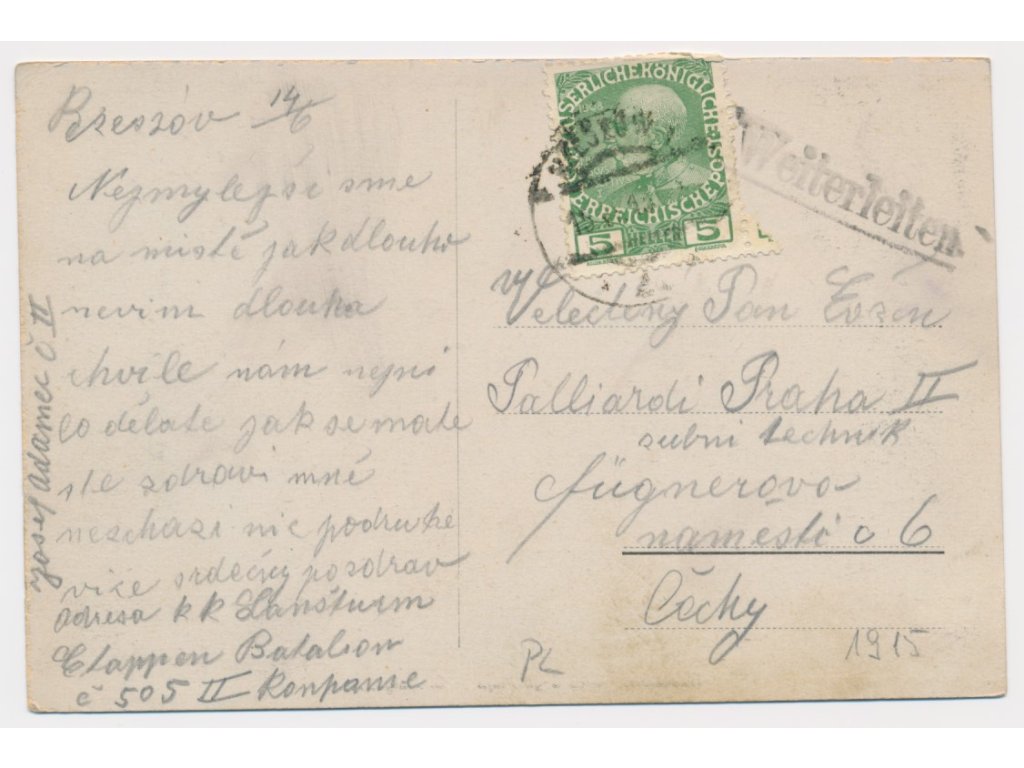 Bzeszóv 14/6
Nejmylejší sme
na místě jak dlouho
nevim dlouka
chvíle nám nejní
co dělate jak se mate
ste zdravi mně
neschazi nic podruhé
více srdečný pozdrav
Adresa k k Lanšturm
Etappen Batalion
č 505 II Konpanie
Josef Adamec č II
SERLICHEKÖNIGLICHE
ERREICHISCHE POS
5 HELLER 5
RZESZÓW
Weiterleiten
Velectěný Pan Evžen
Palliardi Praha II
zubni technik
Fügnerovo
náměstí č 6
Čechy
PL
1915